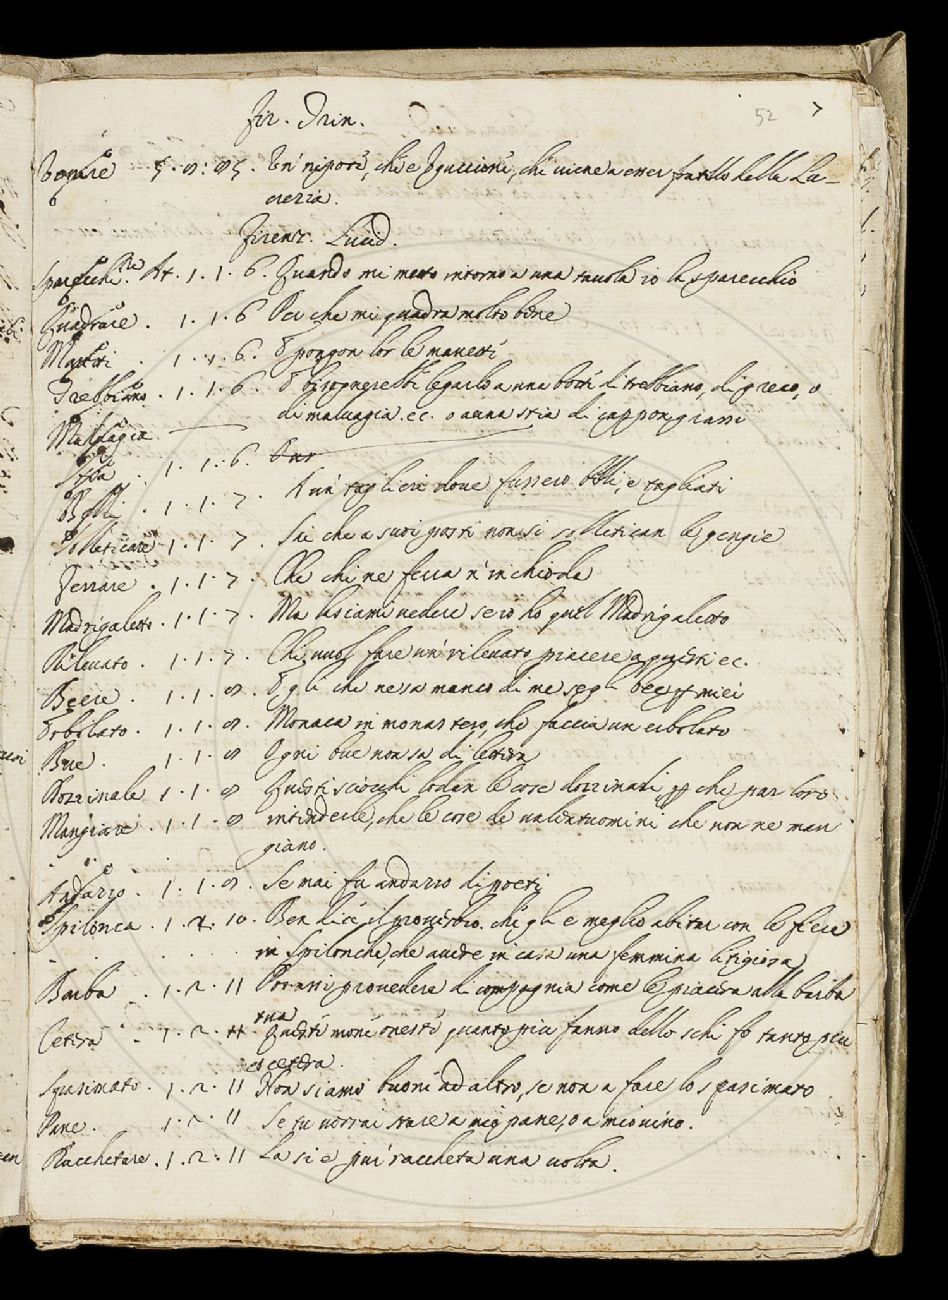 Fir. Trin.
52 7
5. 8: 85. Un nipote, che è Uguccione, che viene a esser fratello della Lu-
crezia.
Firenz. Lucid.
Sparecchi.re At. 1. 1. 6. Quando mi metto intorno a una tavola io la sparecchio
Quadrare. 1. 1. 6 Dei che mi quadra molto bene
1. 1. 6. E pongon lor le manette
Trebbiano. 1. 1. 6. E bisognerebbe legarlo a una botte di trebbiano, di greco, o
di malvagia ec. o a una stia di cappon grassi
Malvagia
Stia. 1. 1. 6.
Belli. 1. 1. 7. A un taglieri dove fussero belli, e tagliati
Solleticare 1. 1. 7. Sie che a suoi posti non si solletican le gengie
Ferrare. 1. 1. 7. Che chi ne ferra n'inchioda
Madrigaletto. 1. 1. 7. Ma lasciami vedere se io ho quel Madrigaletto
Rilevato. 1. 1. 7. Chi vuol fare un rilevato piacere a questi ec.
Beere. 1. 1. 8. Egli che nessa manco di me segli bee
Erbolato. 1. 1. 8. Monaca in monastero, che faccia un erbolato
Bue. 1. 1. 8 Ogni bue non sa di lettera
Dozzinale 1. 1. 8 Questi sciocchi lodan le cose dozzinali, p che par loro
Mangiare. 1. 1. 8 intendecile, che le cose de valentuomini che non ne man
giano.
Andazzo. 1. 1. 8. Se mai fu andazzo di poeti
Spilonca. 1. 2. 10. Ben dice il proverbio. che gli e meglio abitar con le fiere
in Spilonche, che avere in casa una femmina litigiosa
Barba. 1. 2. 11 Potrassi provedere di compagnia come le piacera alla barba
tua
Cetera. 1. 2. 11 Queste mone oneste quanto piu fanno dello schifo tanto piu
eccetera.
Spasimato. 1. 2. 11 Non siamo buoni ad altro, se non a fare lo spasimato
Pane. 1. 2. 11 Se tu vorrai stare a mio pane, o a mio vino.
Racchetare. 1. 2. 11 La si e pur raccheta una volta.